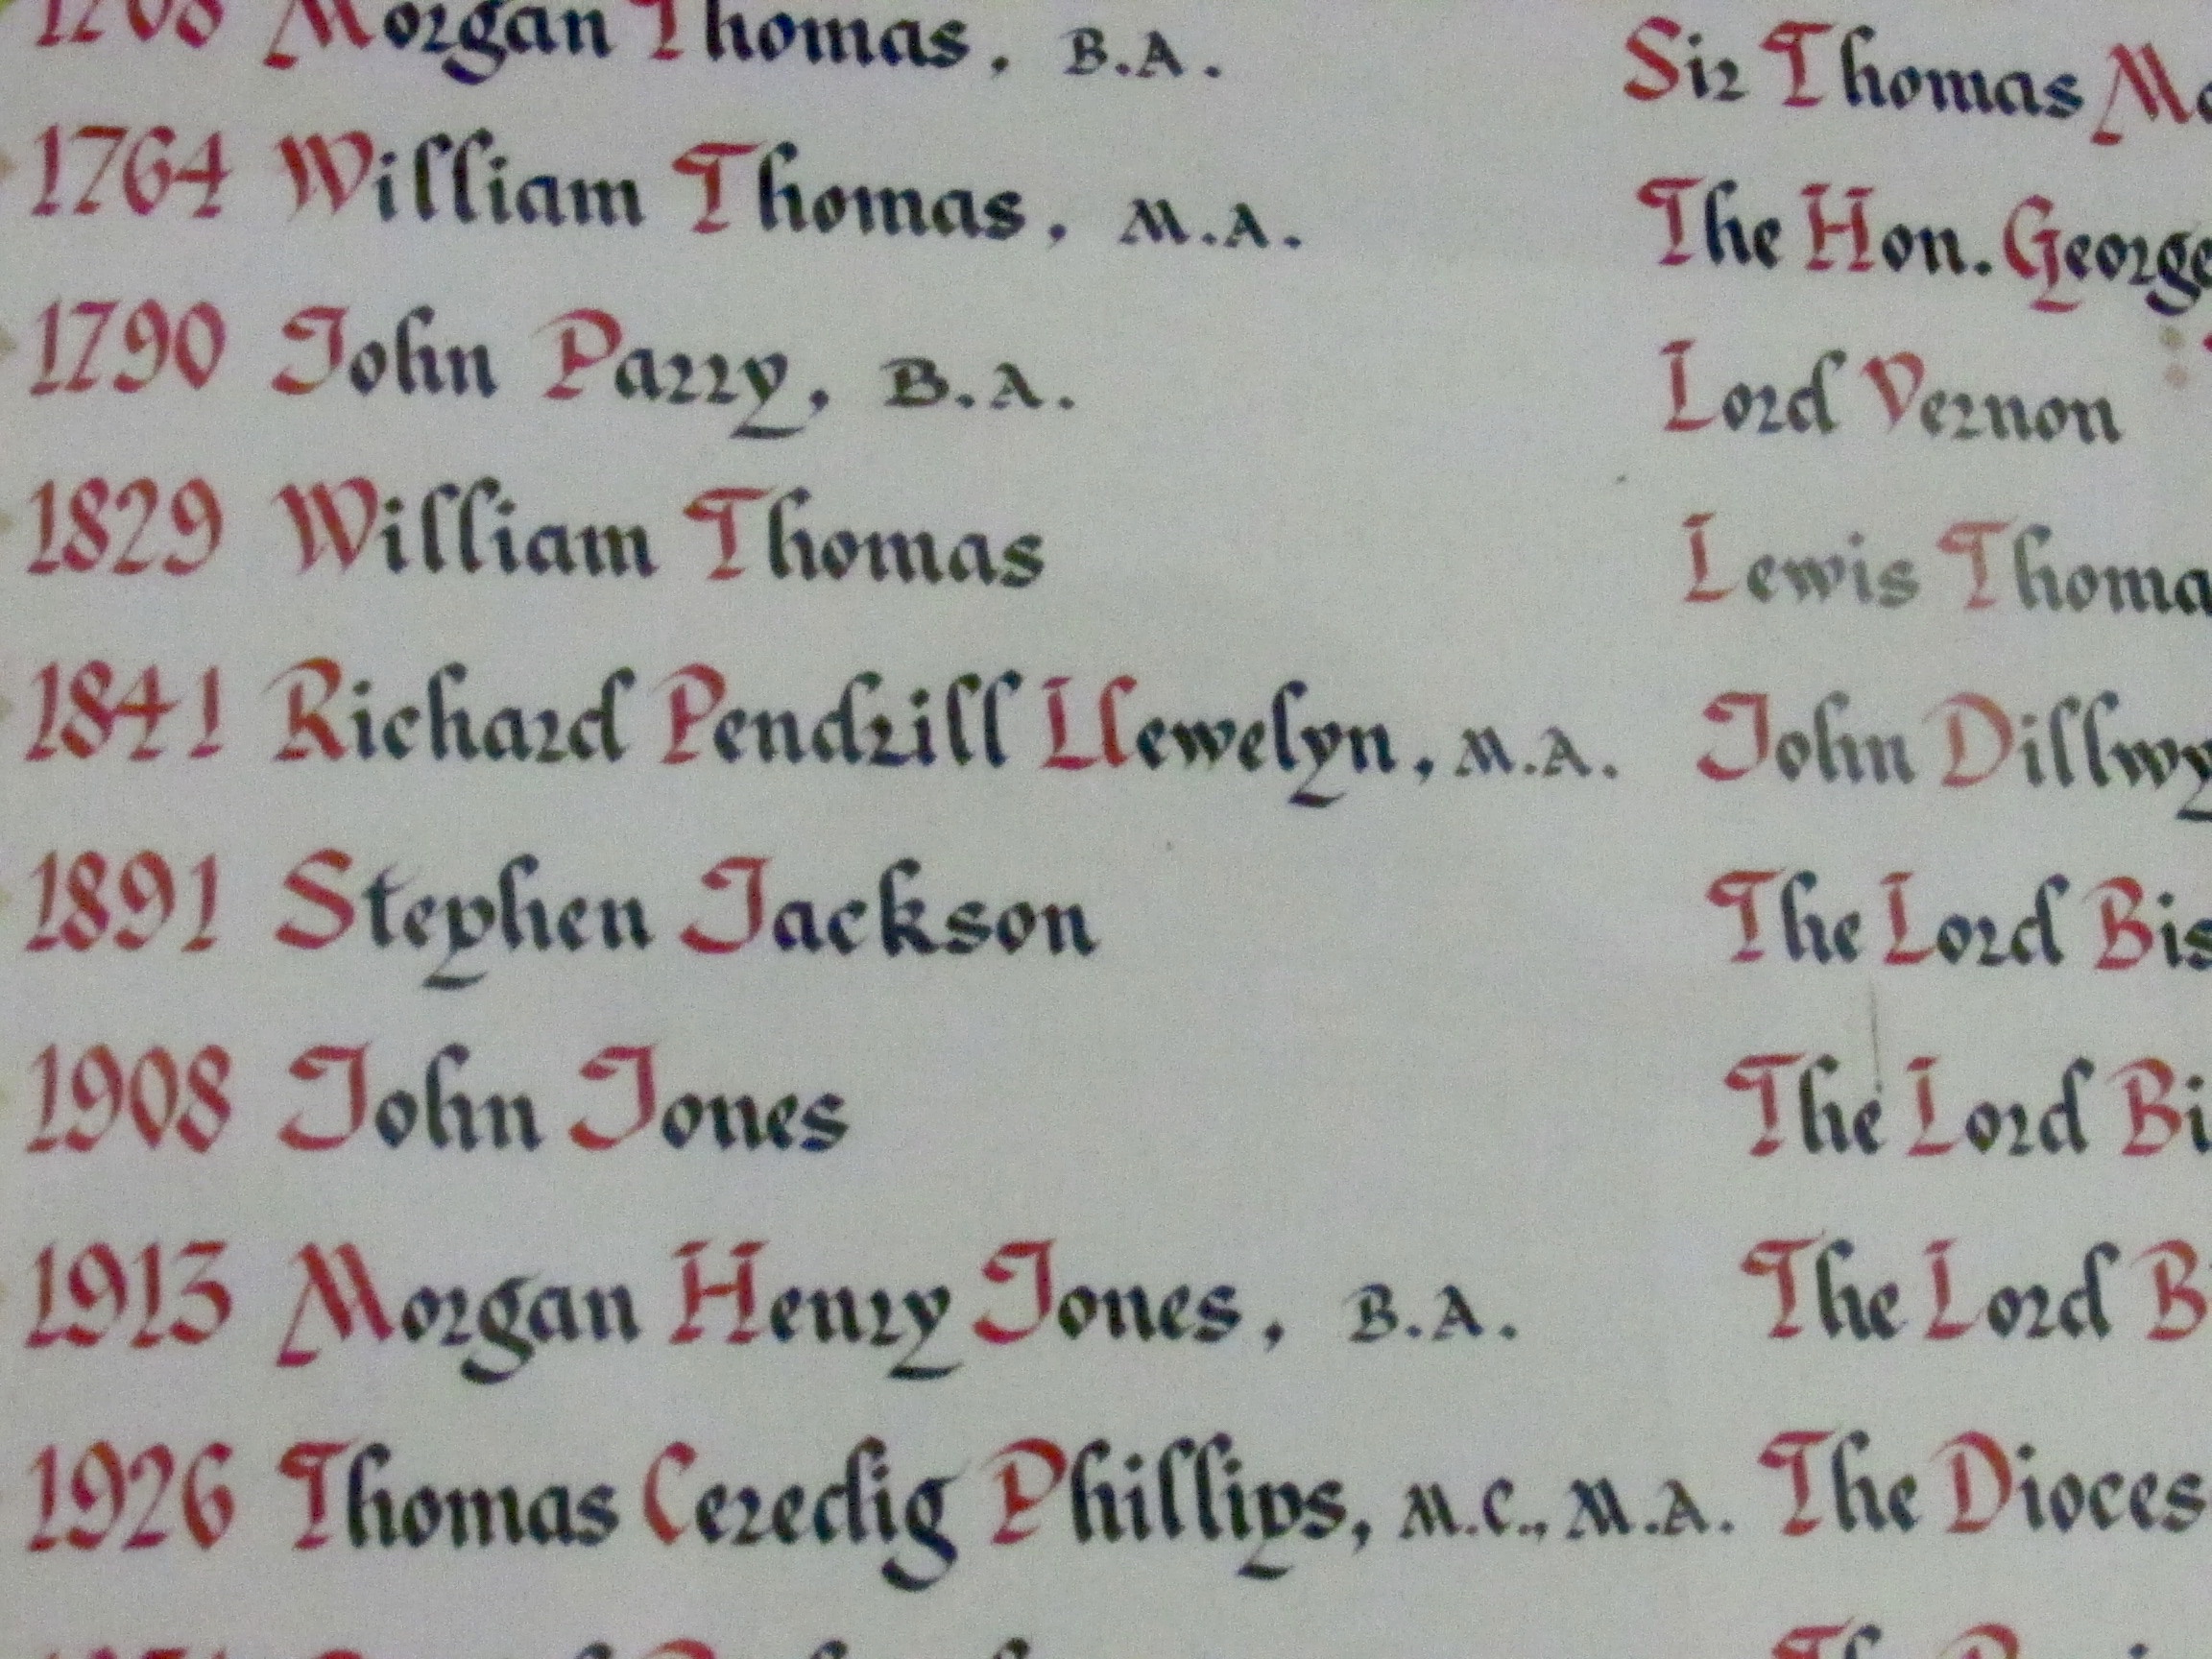 Morgan Thomas, B.A. Sir Thomas
1764 William Thomas, M.A. The Hon. George
1790 John Parry, B.A. Lord Vernon
1829 William Thomas Lewis Thoma
1841 Richard Pendrill Llewelyn, M.A. John Dillwy
1891 Stephen Jackson The Lord Bis
1908 John Jones The Lord Bi
1913 Morgan Henry Jones, B.A. The Lord B
1926 Thomas Ceredig Phillips, M.C., M.A. The Dioces